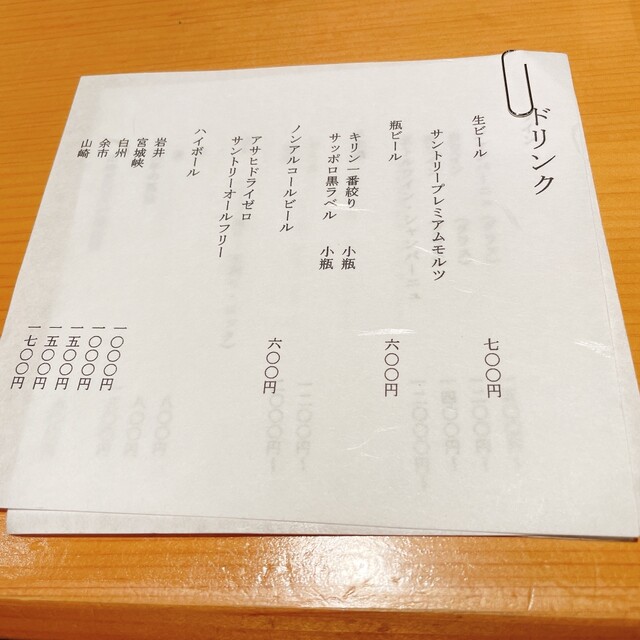 ドリンク
生ビール 七〇〇円
サントリープレミアムモルツ
瓶ビール 六〇〇円
キリン一番絞り 小瓶
サッポロ黒ラベル 小瓶
ノンアルコールビール 六〇〇円
アサヒドライゼロ
サントリーオールフリー
ハイボール
岩井 一〇〇〇円
宮城峡 一〇〇〇円
白州 一五〇〇円
余市 一五〇〇円
山崎 一七〇〇円